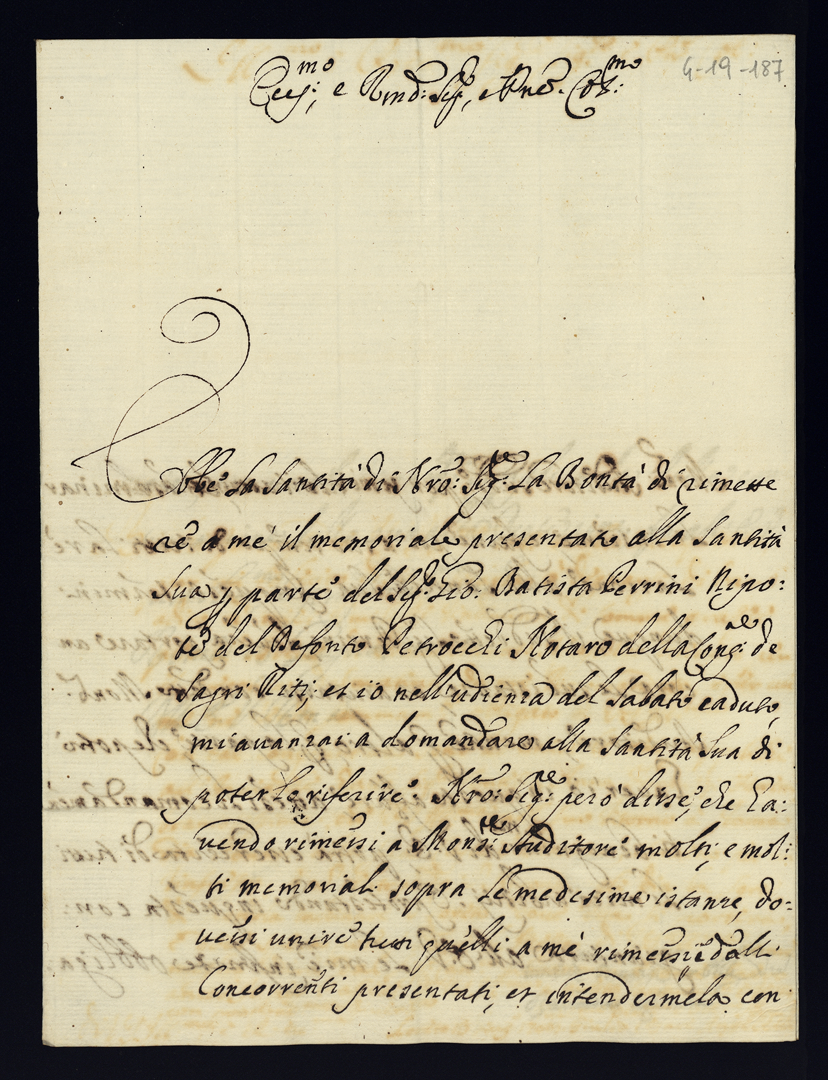 G-19-187
Ecc:mo, e Rmd: Sig:, e Pne Col:mo
Ebbe La Santità di Nro: Sig:re La Bontà di rimette
re a me il memoriale presentato alla Santità
Sua p parte del Sig: Gio: Batista Perrini Nipo:
te del Defonto Petrocchi Notaro della Cong:ne de
Sagri Riti; et io nell'udienza del Sabato caduto
mi avanzai a domandare alla Santità Sua di
poterle riferire. Nro: Sig:re però disse, che ha:
vendo rimessi a Mons:re Auditore molti, e mol:
ti memoriali sopra Le medesime istanze, do:
versi unire tutti quelli a me rimessi, e dalli
Concorrenti presentati, et intendermela con